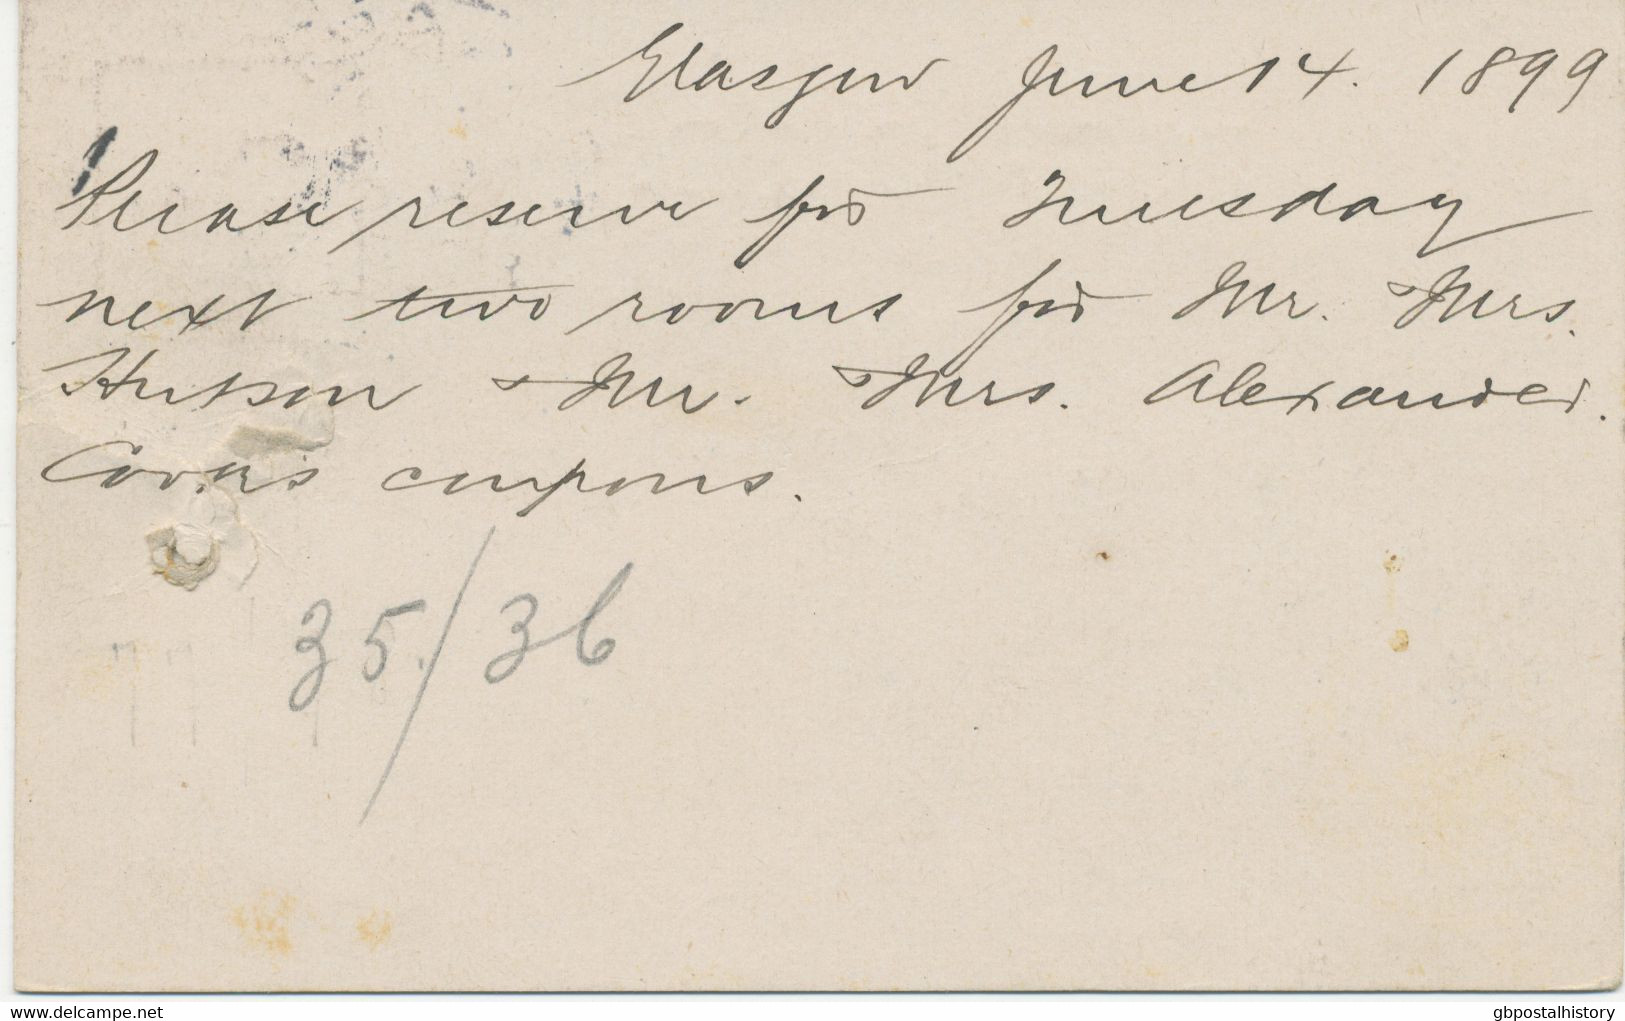 Glasgow June 14. 1899
Please reserve for Tuesday
next two rooms for Mr. & Mrs.
Hutson & Mr. & Mrs. Alexander.
Cook's coupons.
35/36
www.delcampe.net gbpostalhistory